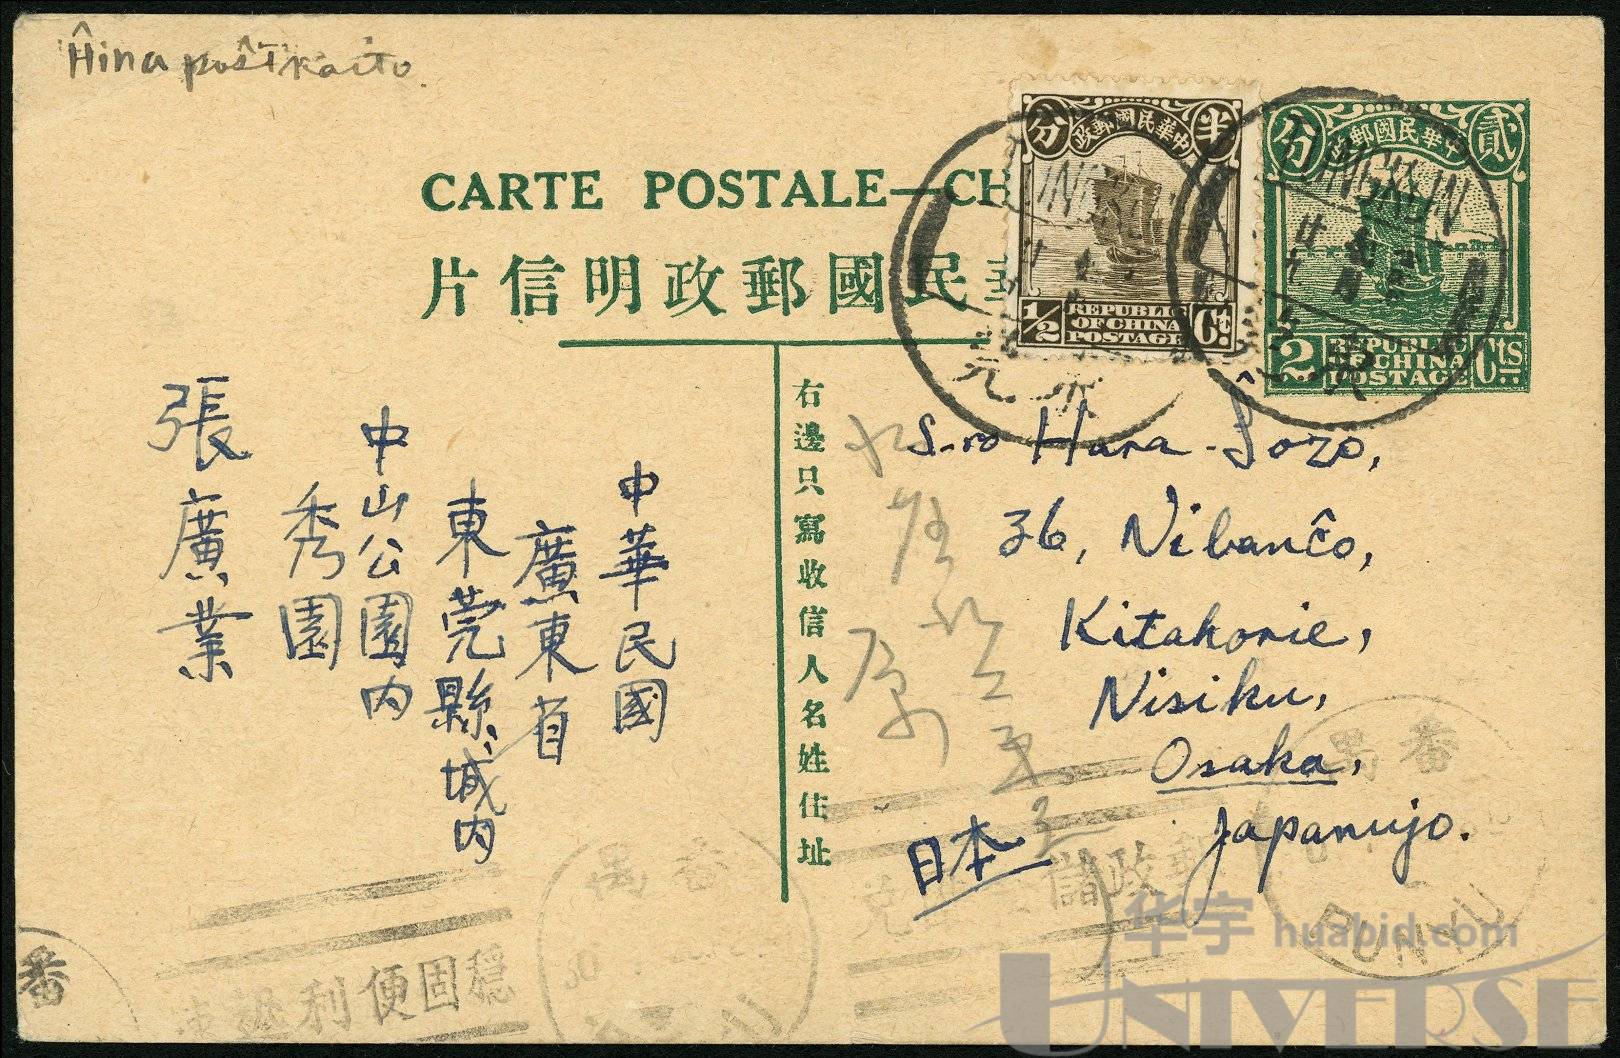 Ĥina poŝtkarto
CARTE POSTALE—CH
片信明政郵國民
分 中華民國郵政 半
1/2 REPUBLIC OF CHINA POSTAGE Ct.
分 中華民國郵政 貳
2 REPUBLIC OF CHINA POSTAGE Cts.
TUNGKUN
東莞
右邊只寫收信人名姓住址
S-ro Hara-Ŝozo,
36, Nibanĉo,
Kitahorie,
Nisiku,
Osaka,
Japanujo.
日本
中華民國
廣東省
東莞縣城內
中山公園內
秀園
張廣業
番禺
PUNYU
郵政儲
穩固便利
番
华宇 huabid.com
UNIVERSE